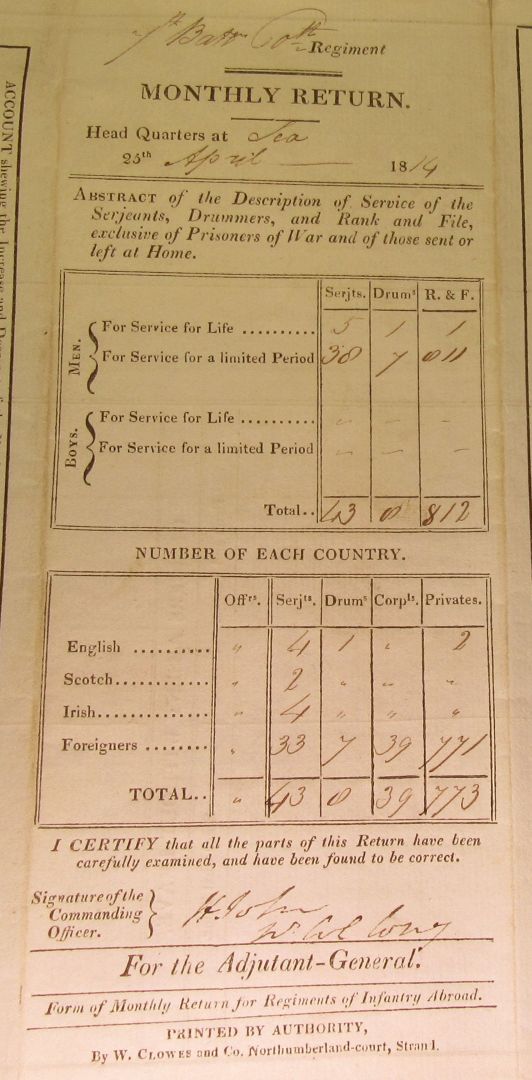 7th Battn 60th Regiment
MONTHLY RETURN.
Head Quarters at Sea
25th April 1814
ABSTRACT of the Description of Service of the
Serjeants, Drummers, and Rank and File,
exclusive of Prisoners of War and of those sent or
left at Home.
Serjts. Drums R. & F.
MEN.
For Service for Life .......... 5 1 1
For Service for a limited Period 38 7 811
BOYS.
For Service for Life .......... - - -
For Service for a limited Period - - -
Total.. 43 8 812
NUMBER OF EACH COUNTRY.
Offrs. Serjts. Drums Corpls. Privates.
English .......... " 4 1 " 2
Scotch............ " 2 " " "
Irish.............. " 4 " " "
Foreigners ........ " 33 7 39 771
TOTAL.. " 43 8 39 773
I CERTIFY that all the parts of this Return have been
carefully examined, and have been found to be correct.
Signature of the
Commanding
Officer.
H. John
For the Adjutant-General.
Form of Monthly Return for Regiments of Infantry Abroad.
PRINTED BY AUTHORITY,
By W. CLOWES and Co. Northumberland-court, Strand.
ACCOUNT shewing the Increase and